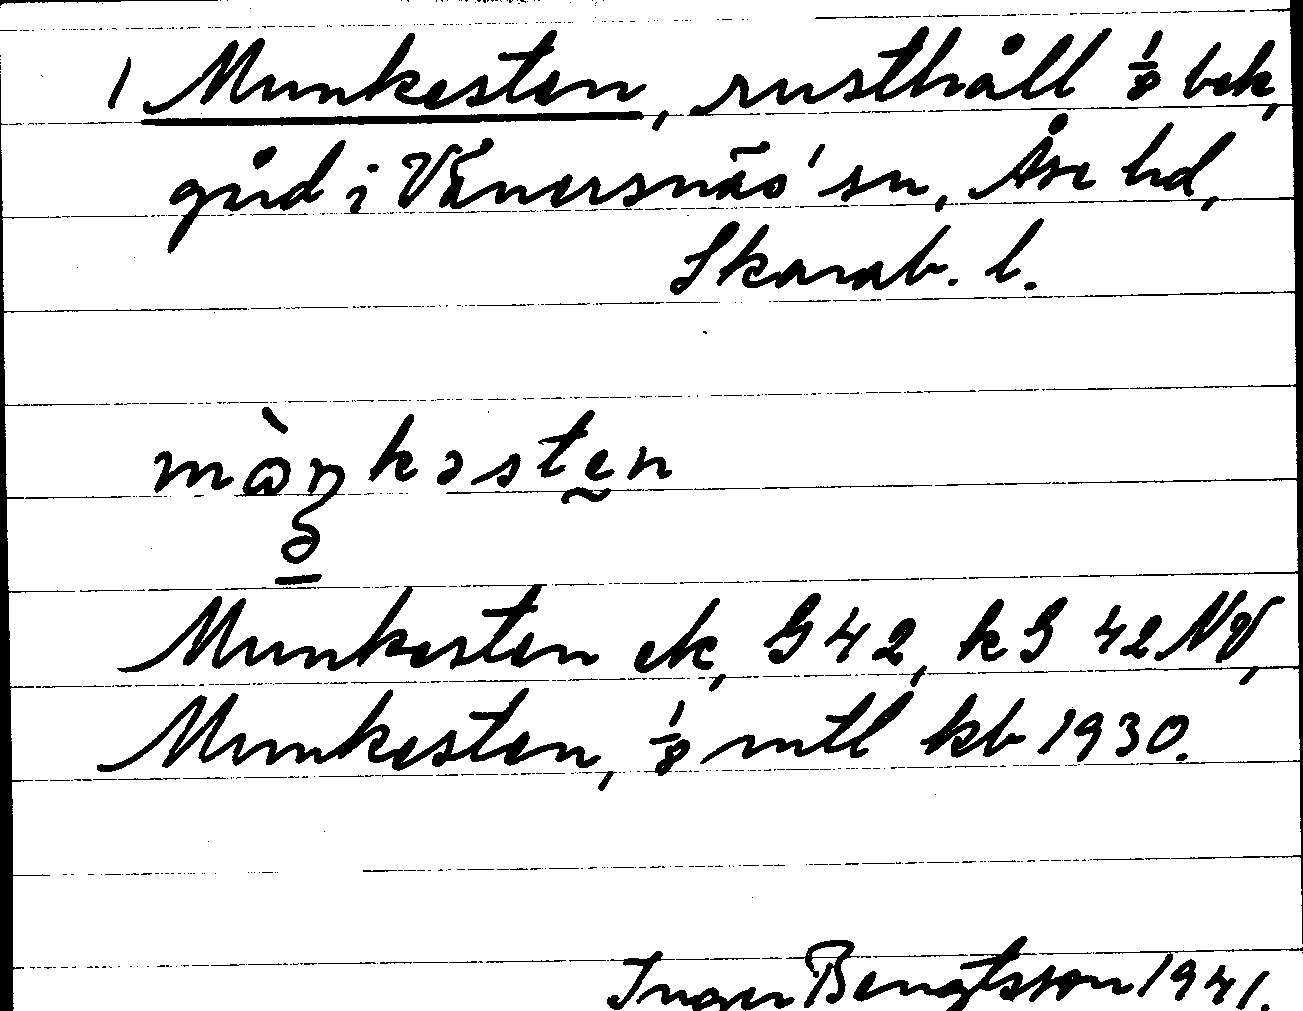 1 Munkesten, rusthåll 1/8 bek,
gård i Vänersnäs' sn, Åse hd,
Skarab. l.
mə̀ŋkəstən
Munkesten ek, G 42, k G 42 NV,
Munkesten, 1/8 mtl kb 1930.
Inger Bengtsson 1941.